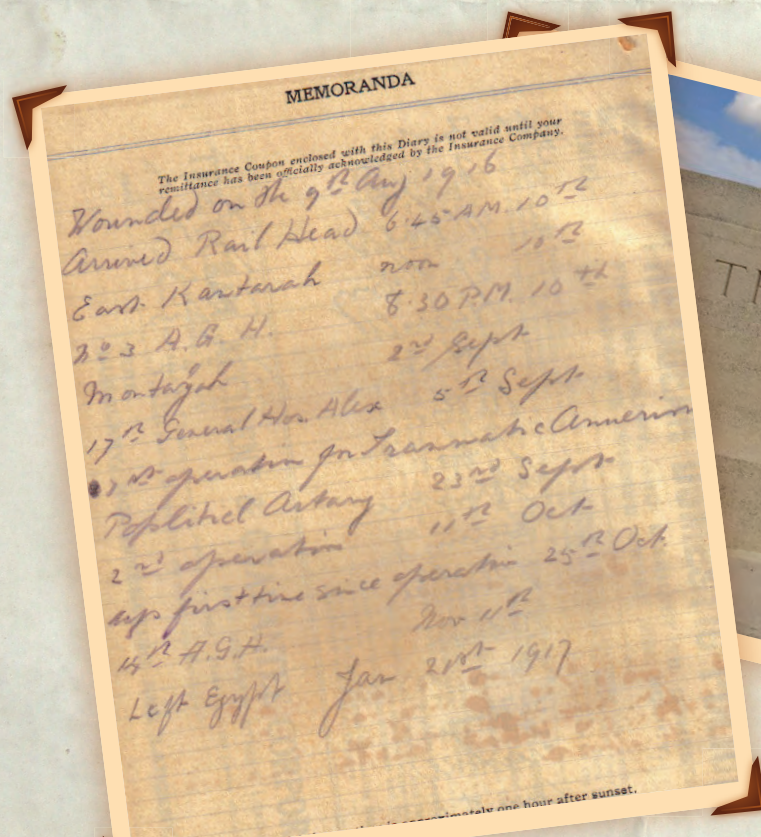 MEMORANDA
The Insurance Coupon enclosed with this Diary is not valid until your
remittance has been officially acknowledged by the Insurance Company.
Wounded on the 9th Aug 1916
Arrived Rail Head 6.45 AM. 10th
East Kantarah noon 10th
No 3 A.G.H. 8.30 P.M. 10th
Montazah 2nd Sept
17th General Hos. Alex 5th Sept
1st operation for Traumatic Anneurism
Poplitiel Artary 23rd Sept
2nd operation 11th Oct
up first time since operation 25th Oct.
14th A.G.H. Nov 11th
Left Egypt Jan 21st 1917
approximately one hour after sunset.